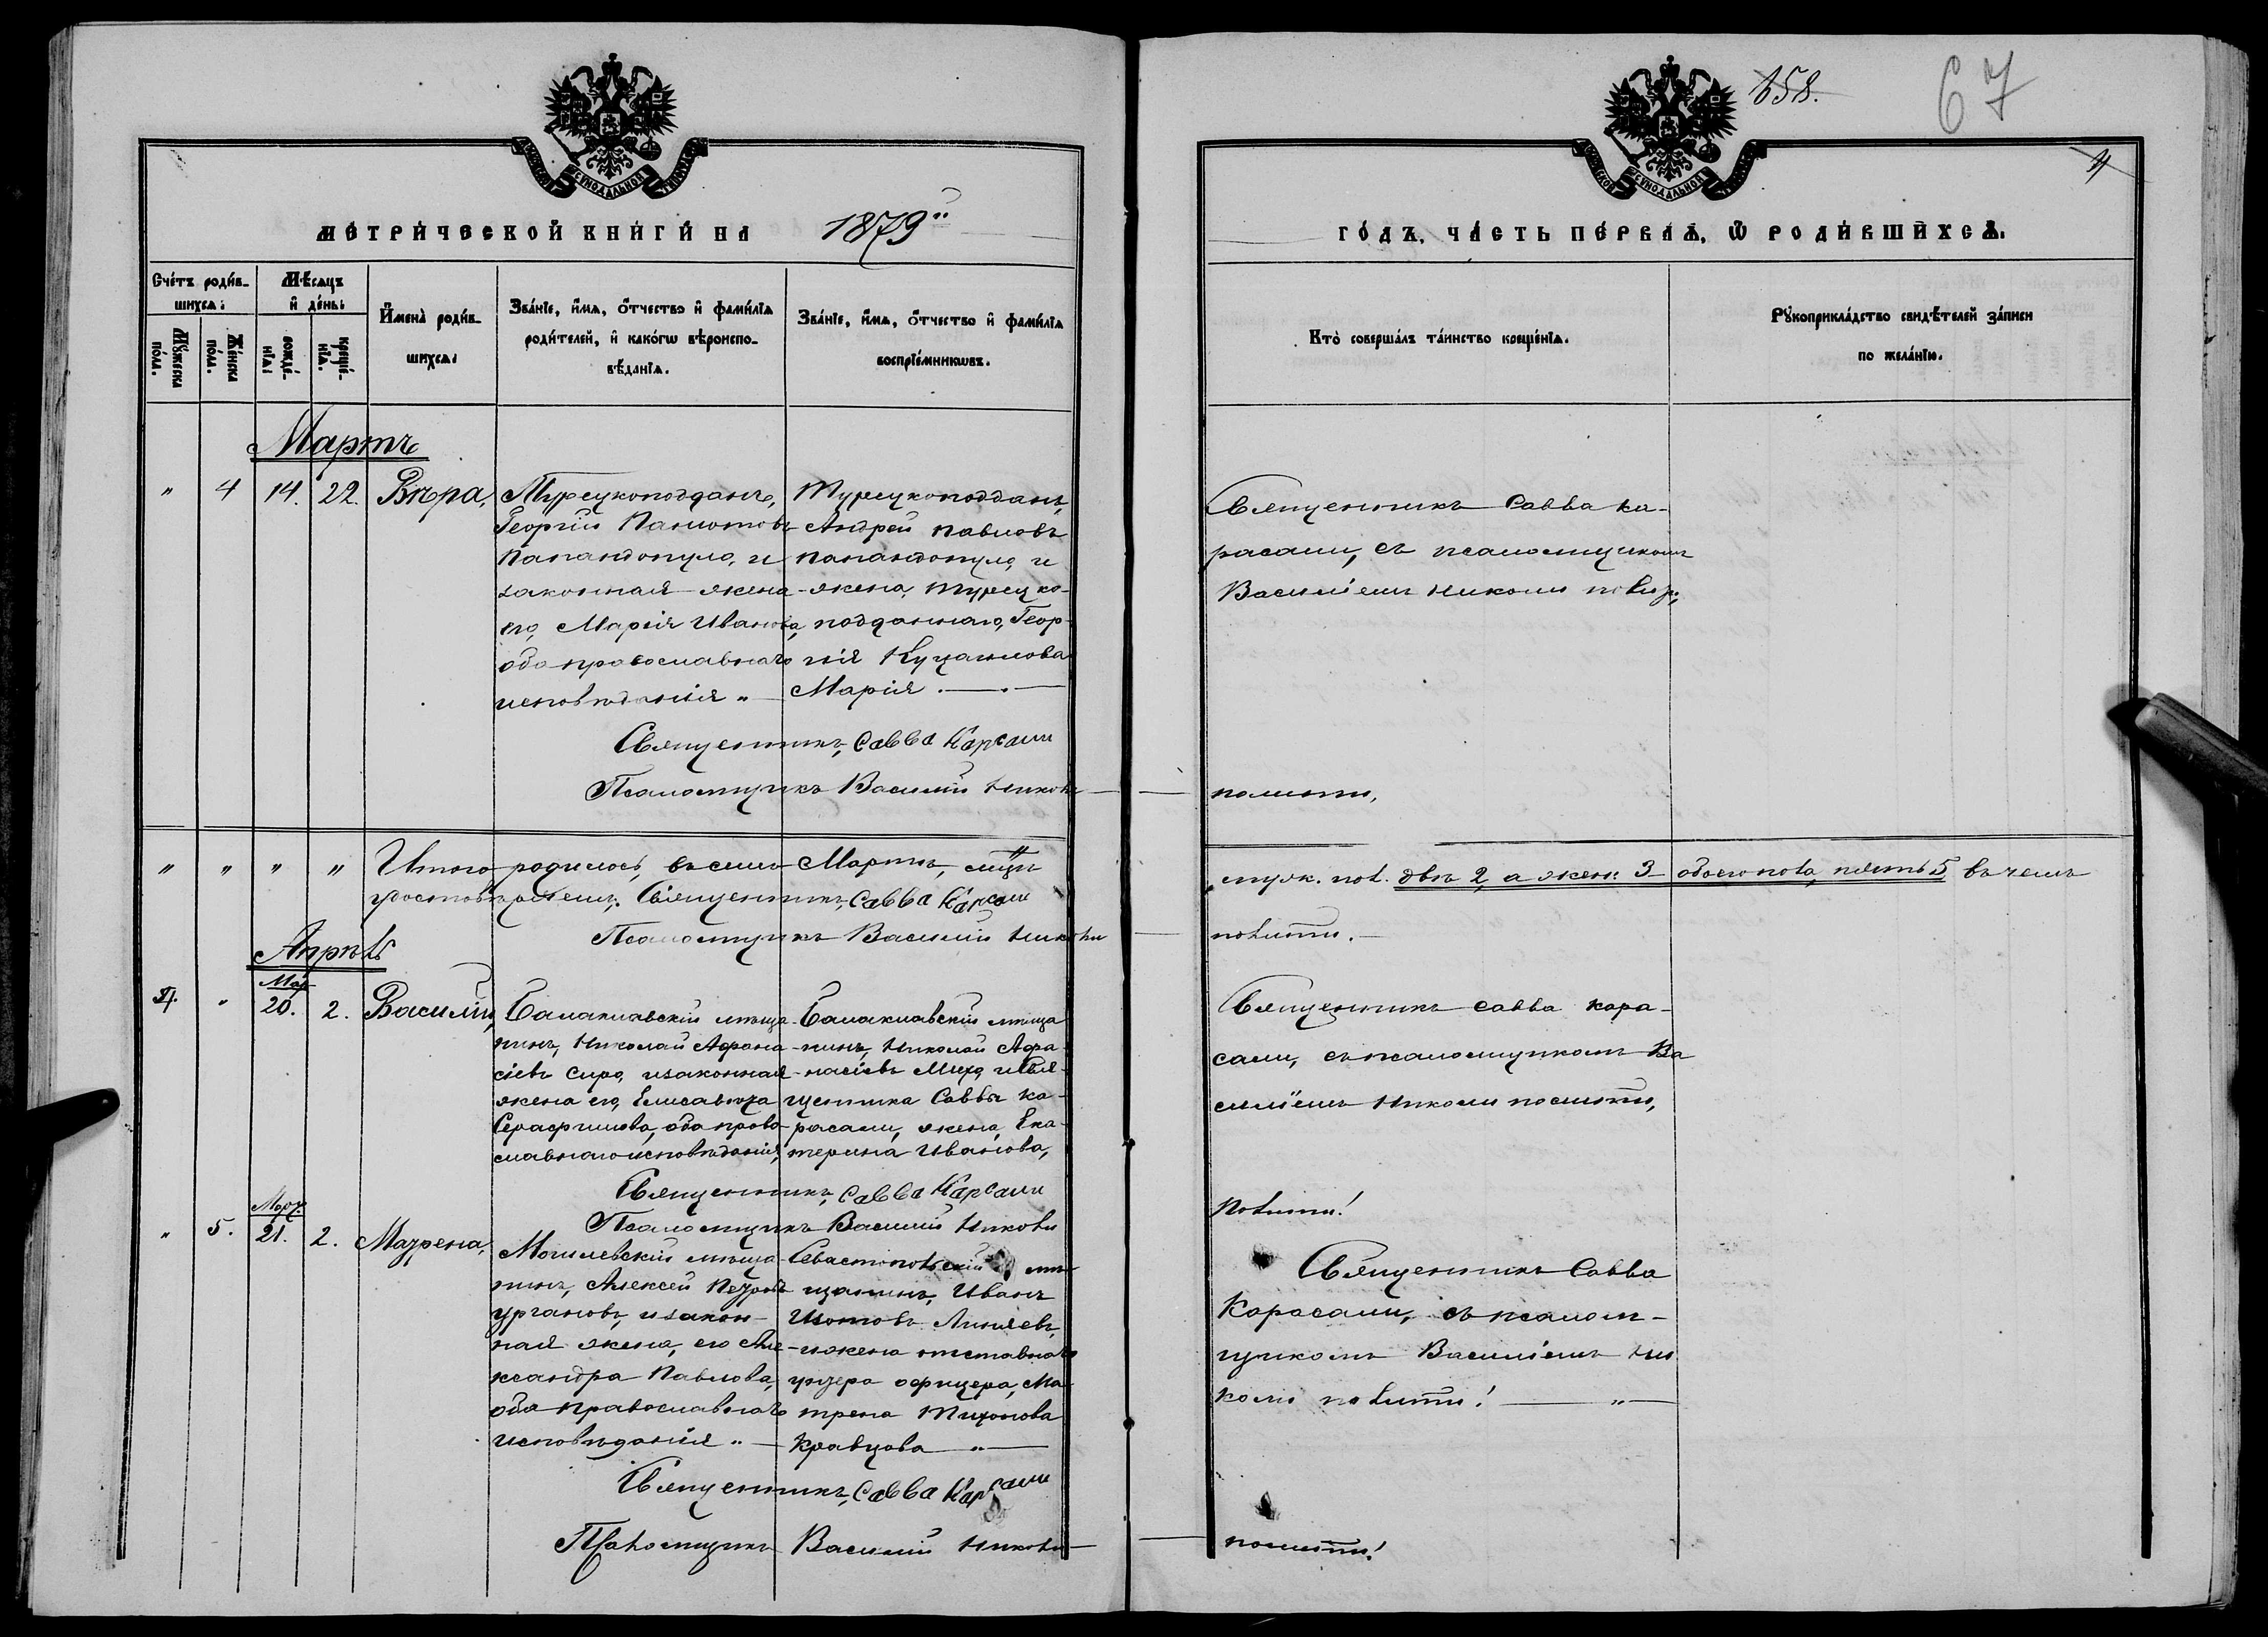 158.
67
4
МЕТРИЧЕСКОЙ КНИГИ НА 1879й
ГОДЪ, ЧАСТЬ ПЕРВАЯ, Ѡ РОДИВШИХСЯ.
Счетъ родив-
шихся:
Мужеска
пола.
Женска
пола.
Мѣсяцъ
и день:
рожде-
нія:
креще-
нія.
Имена родив-
шихся:
Званіе, имя, отчество и фамилія
родителей, и какогѡ вѣроиспо-
вѣданія.
Званіе, имя, отчество и фамилія
воспріемникѡвъ.
Кто совершалъ таинство крещенія.
Рукоприкладство свидѣтелей записи
по желанію.
Мартъ
" 4 14. 22. Вѣра,
Турецкоподдань,
Георгій
Папандопуло, и
законная жена
его, Марія Иванова,
оба православнаго
исповѣданія "
Турецкоподдань,
Андрей Павловъ
Папандопуло, и
жена, турецко-
подданнаго, Геор-
гія
Марія
Священникъ Савва Ка-
расали, съ псаломщикомъ
Василіемъ Николи
Священникъ, Савва Карсали
Псаломщикъ Василій Никол
" " " " Итого родилось, въ семъ Мартѣ, мцѣ
муж. пол. двѣ 2, а жен: 3 обоего пола, пять 5 въ чемъ
удостовѣряемъ. Священникъ, Савва Карсали
Псаломщикъ Василій Николи
Апрѣль
4. " Мар 20. 2. Василій,
Балаклавскій мѣща-
нинъ, Николай Афана-
сіевъ Сиро, и законная
жена его, Елисавета
Серафимова, оба право-
славнаго исповѣданія,
Балаклавскій мѣща
нинъ, Николай Афа-
насіевъ и Свя-
щенника Саввы Ка-
расали, жена, Ека-
терина Иванова,
Священникъ Савва Кара-
сали, съ псаломщикомъ Ва
силіемъ Николи
Священникъ, Савва Карсали
Псаломщикъ Василій Николи
" 5. Март. 21. 2. Матрена,
Могилевскій мѣща-
нинъ, Алексей Петровъ
Ургановъ, и закон-
ная жена, его Але-
ксандра Павлова,
оба православнаго
исповѣданія "
Севастопольскій мѣ-
щанинъ, Иванъ
и жена отставнаго
унтера офицера, Ма-
трена Тихонова
Кравцова "
Священникъ Савва
Карасали, съ псалом-
щикомъ Василіемъ Ни
коли
Священникъ, Савва Карсали
Псаломщикъ Василій Николи